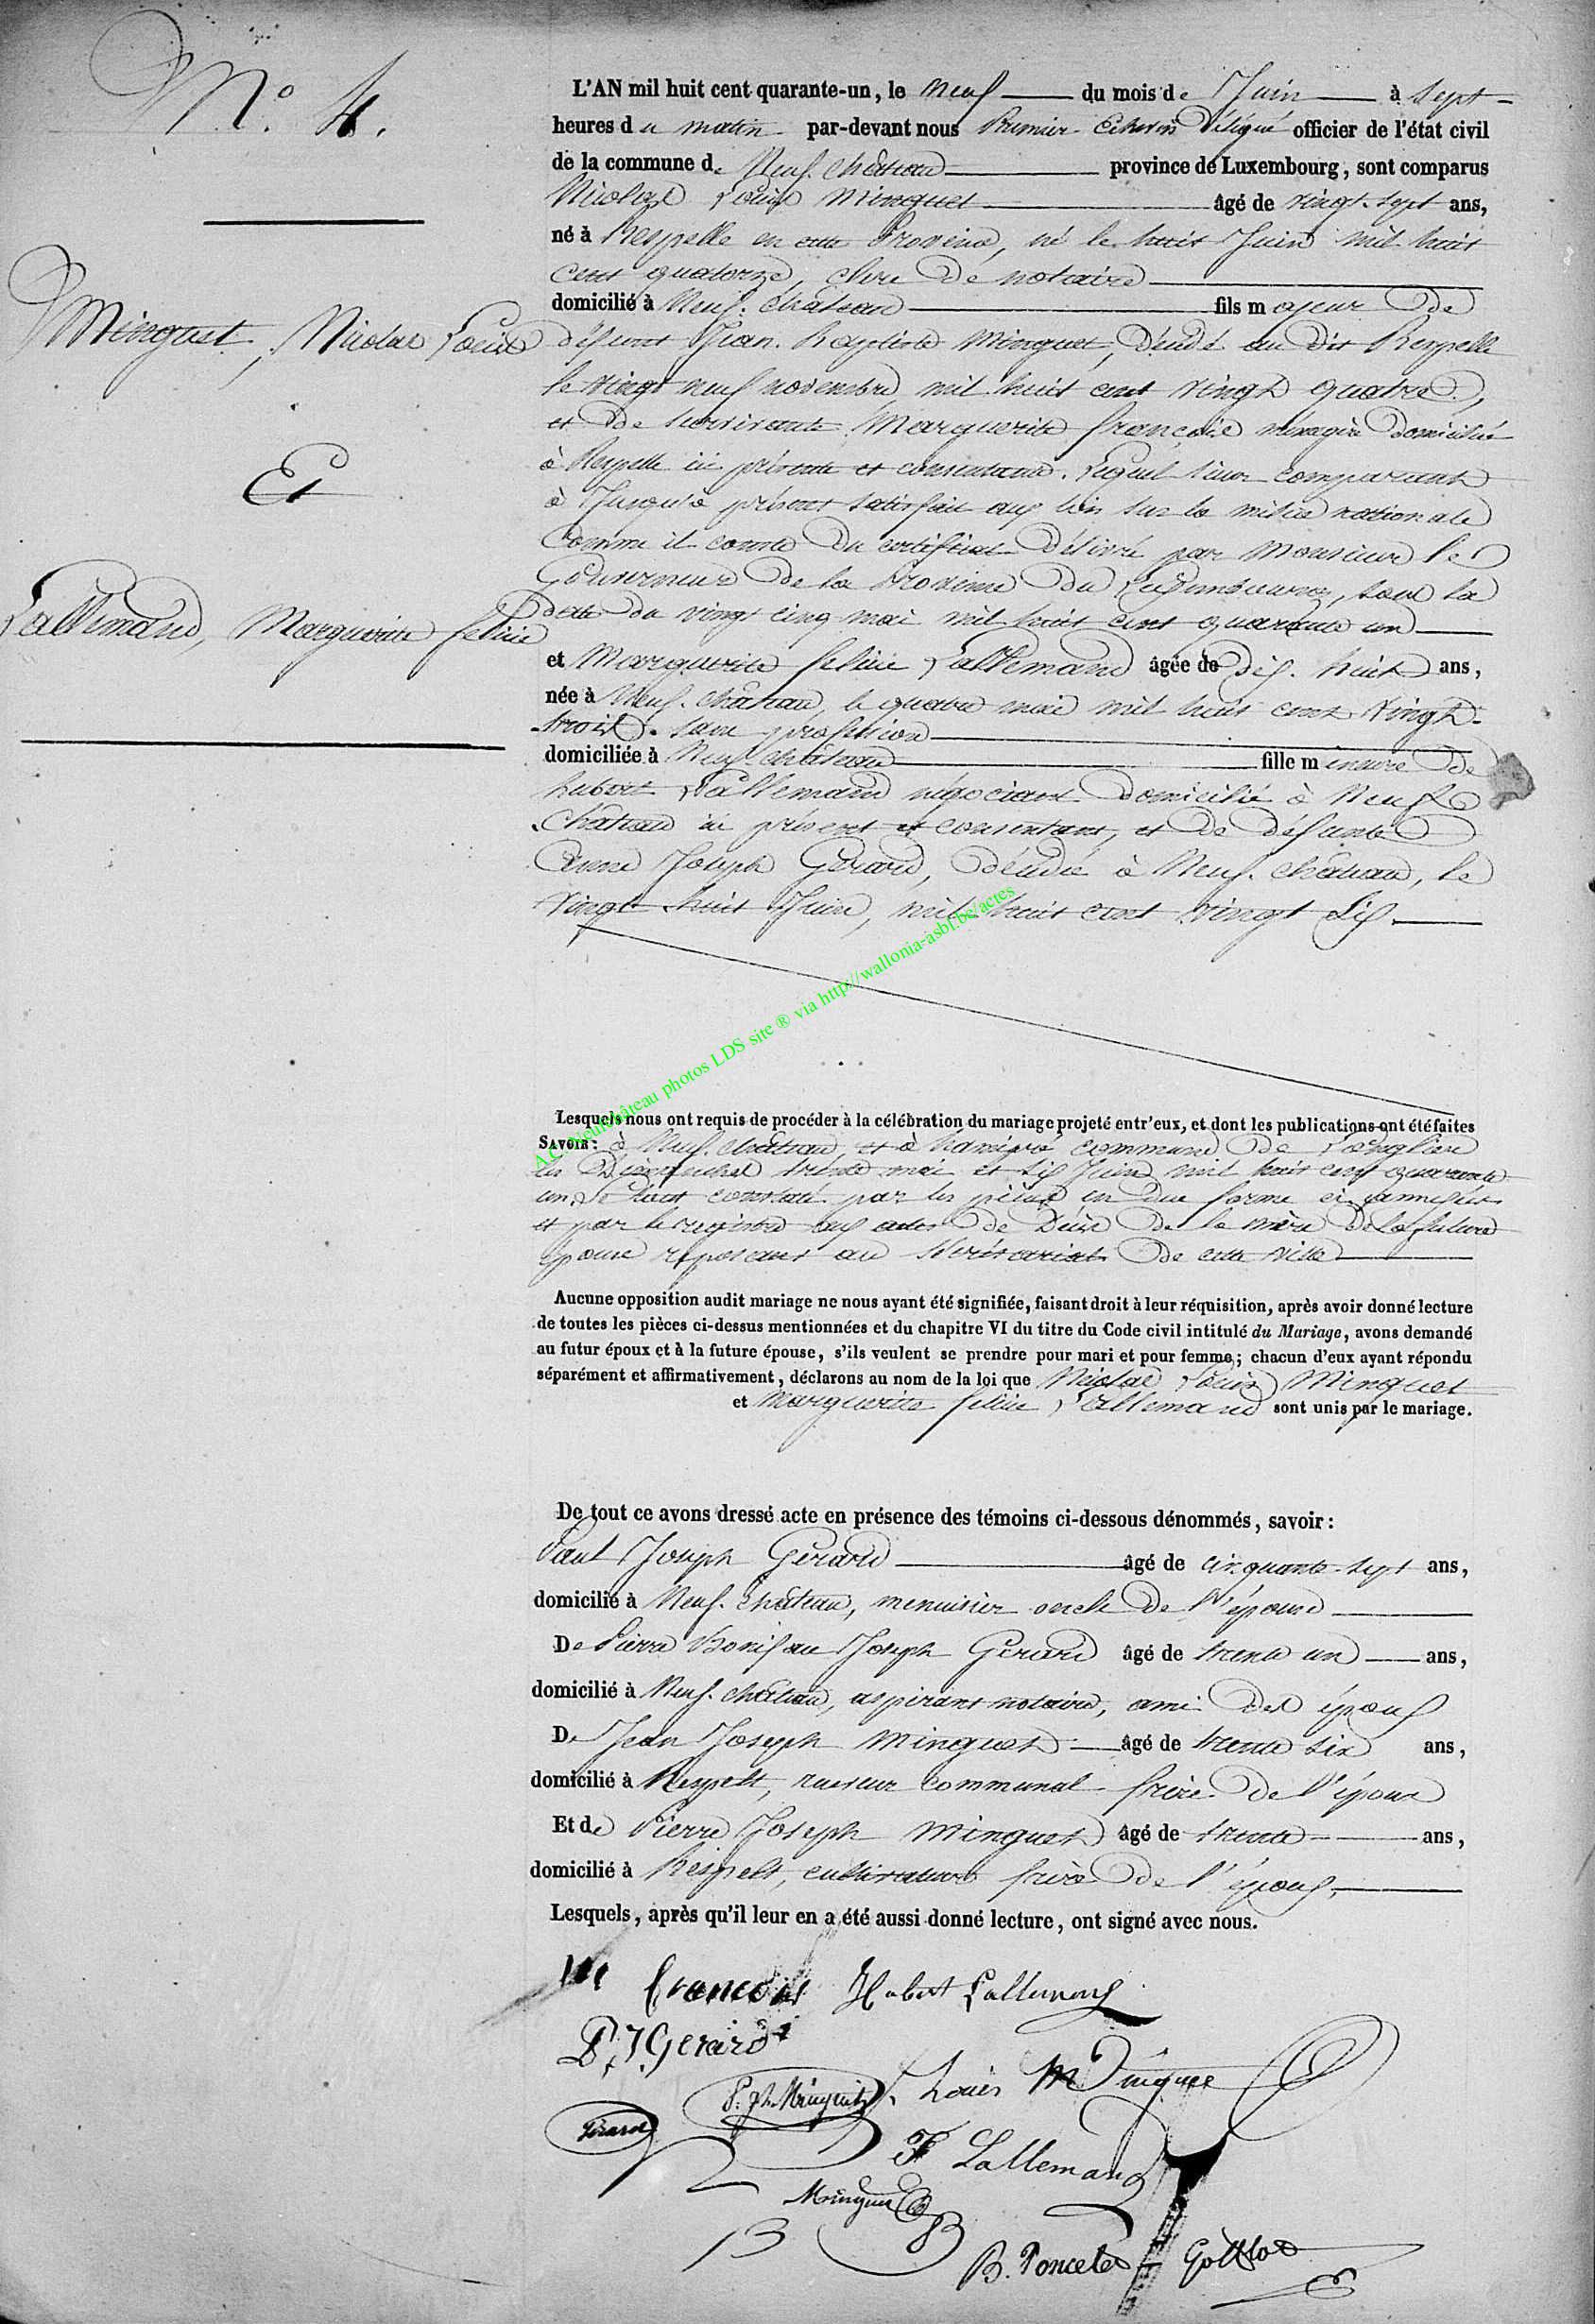 N.° 4.
Minguet, Nicolas Louis
Et
Lallemand, Marguerite felicie
L'AN mil huit cent quarante-un, le neuf du mois de Juin à sept
heures du matin par-devant nous Premier Echevin Délégué officier de l'état civil
de la commune de Neuf. Château province de Luxembourg, sont comparus
Nicolas Louis Minguet âgé de vingt-sept ans,
né à Respelle en cette Province, né le huit Juin mil huit
cent quatorze, clerc de notaire
domicilié à Neuf. Château fils majeur de
défunt Jean. Baptiste Minguet, décédé au dit Respelle
le vingt neuf novembre mil huit cent vingt quatre,
et de survivante Marguerite françois ménagère domiciliée
à Respelle ici présente et consentante. Lequel futur comparant
à Jusqu'à présent satisfait aux lois sur la milice nationale
Comme il conste du certificat délivré par Monsieur le
Gouverneur de la Province du Luxembourg, sous la
date du vingt cinq mai mil huit cent quarante un
et Marguerite felicie Lallemand âgée de dix. huit ans,
née à Neuf. château, le quatre mai mil huit cent vingt-
trois. sans profession
domiciliée à Neuf château fille mineure de
hubert Lallemand négociant domicilié à Neuf
Château ici présent et consentant, et de défunte
Anne Joseph Gérard, décédée à Neuf. château, le
vingt huit Juin, mil huit cent vingt six.
A.C. Neufchâteau photos LDS site ® via http://wallonia-asbl.be/actes
Lesquels nous ont requis de procéder à la célébration du mariage projeté entr'eux, et dont les publications ont été faites
SAVOIR: à Neuf. château, et à hamipré commune de Longlier
les Dimanches trente mai et six Juin mil huit cent quarante
un, le tout constaté par les pièces en due forme ci annexées
et par le registre aux actes de Décès de la mère de la future
épouse reposant au Secrétariat de cette ville
Aucune opposition audit mariage ne nous ayant été signifiée, faisant droit à leur réquisition, après avoir donné lecture
de toutes les pièces ci-dessus mentionnées et du chapitre VI du titre du Code civil intitulé du Mariage, avons demandé
au futur époux et à la future épouse, s'ils veulent se prendre pour mari et pour femme; chacun d'eux ayant répondu
séparément et affirmativement, déclarons au nom de la loi que Nicolas Louis Minguet
et Marguerite felicie Lallemand sont unis par le mariage.
De tout ce avons dressé acte en présence des témoins ci-dessous dénommés, savoir:
Paul Joseph Gérard âgé de cinquante-sept ans,
domicilié à Neuf. Château, menuisier oncle de l'épouse
De Pierre Boniface Joseph Gérard âgé de trente un ans,
domicilié à Neuf. château, aspirant notaire, ami des époux
De Jean Joseph Minguet âgé de trente six ans,
domicilié à Respelt, receveur communal frère de l'époux
Et de Pierre Joseph Minguet âgé de trente ans,
domicilié à Respelt, cultivateur frère de l'époux,
Lesquels, après qu'il leur en a été aussi donné lecture, ont signé avec nous.
françois Hubert Lallemand
P. J. Gerard
P. Jh. Minguet Louis Minguet
Gérard
F Lallemand
Minguet
B. Poncelet